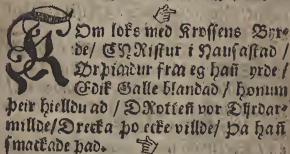 KOm loks med Krossens Byr-
de/ CHRistur i Hausastad /
Ørpiandur fra eg hañ yrde /
Edik Galle blandad / honum
þeir hielldu ad / DRotteñ vor Dyrdar-
millde/ Drecka þo ecke villde/ þa hañ
smackade þad.